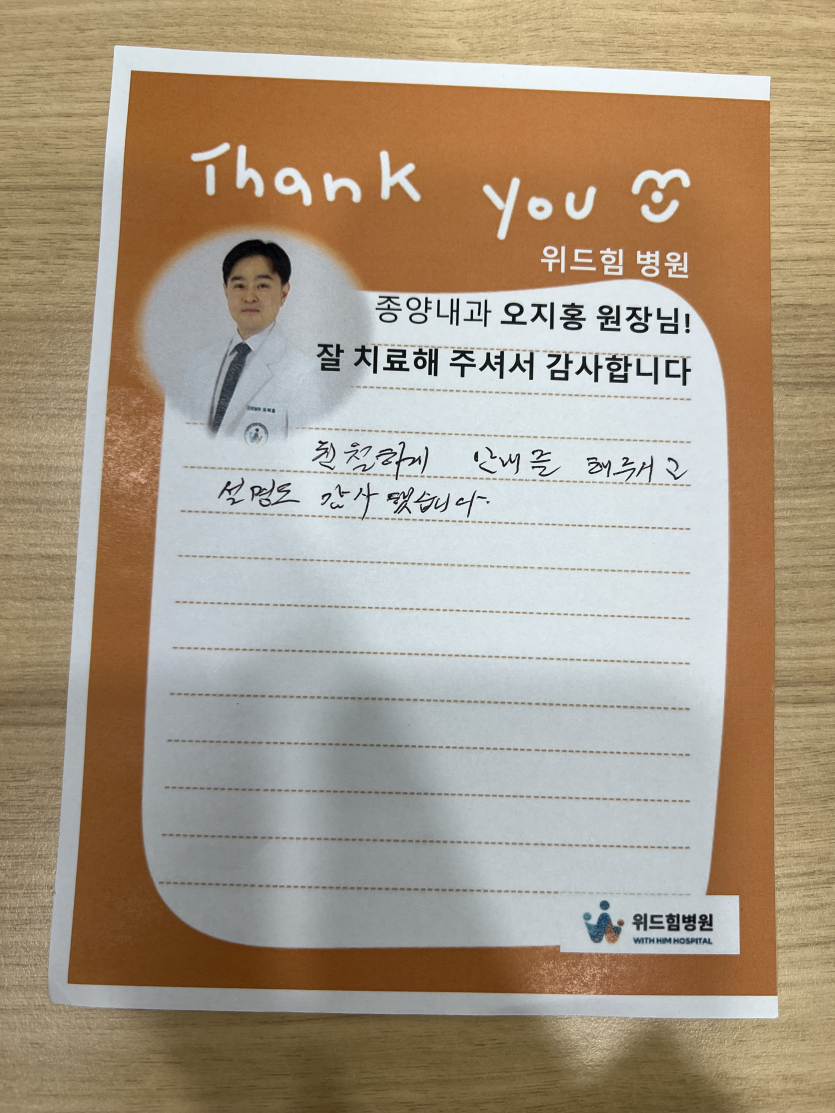 Thank you
위드힘 병원
종양내과 오지홍 원장님!
잘 치료해 주셔서 감사합니다
친절하게 안내를 해주시고
설명도 감사했습니다.
위드힘병원
WITH HIM HOSPITAL